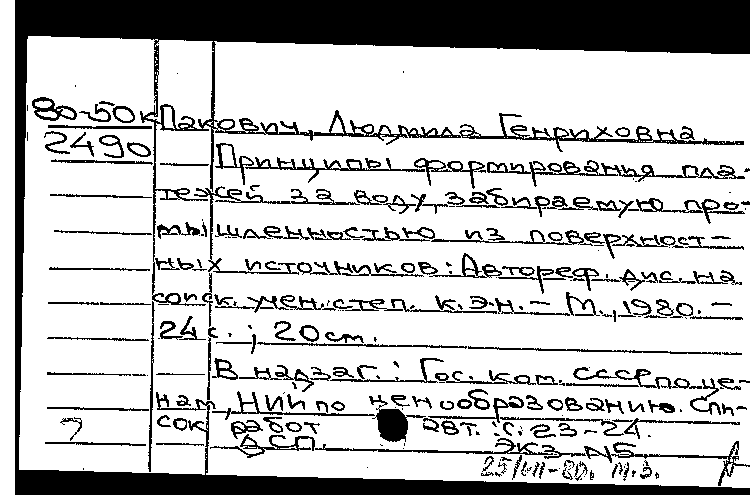 80-50к Пакович, Людмила Генриховна.
2490 Принципы формирования пла-
тежей за воду, забираемую про-
мышленностью из поверхност-
ных источников: Автореф. дис. на
соиск. учен. степ. к.э.н. – М., 1980. –
24 с. ; 20 см.
В надзаг.: Гос. ком. СССР по це-
нам, НИИ по ценообразованию. Спи-
сок работ авт.: с. 23-24.
ДСП. Экз. №5.